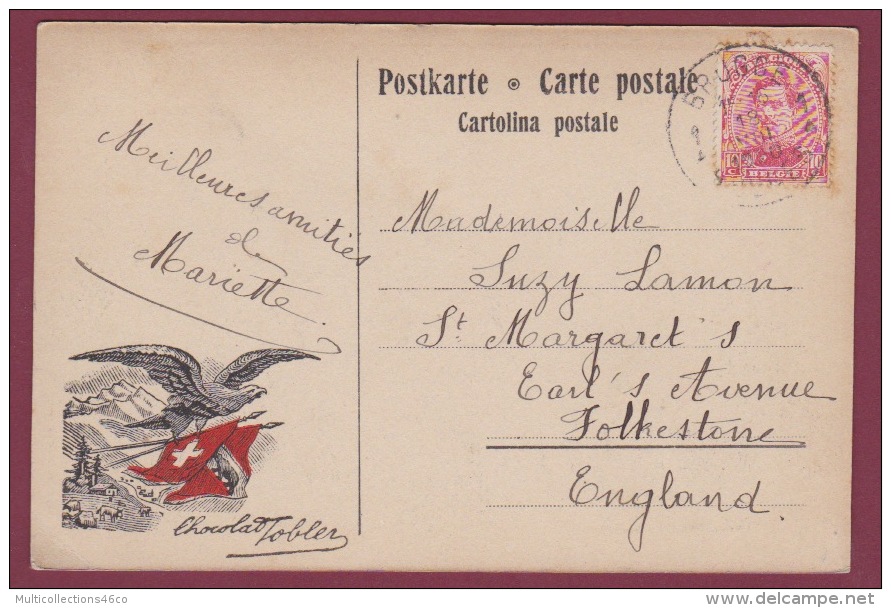 Postkarte • Carte postale
Cartolina postale
Meilleures amitiés
de
Mariette.
Mademoiselle
Suzy Lamon
St. Margaret's
Earl's Avenue
Folkestone
England.
Chocolat Tobler
BRUGGE
10 c
10 c
BELGIË
Multicollections46co
www.delcampe.net